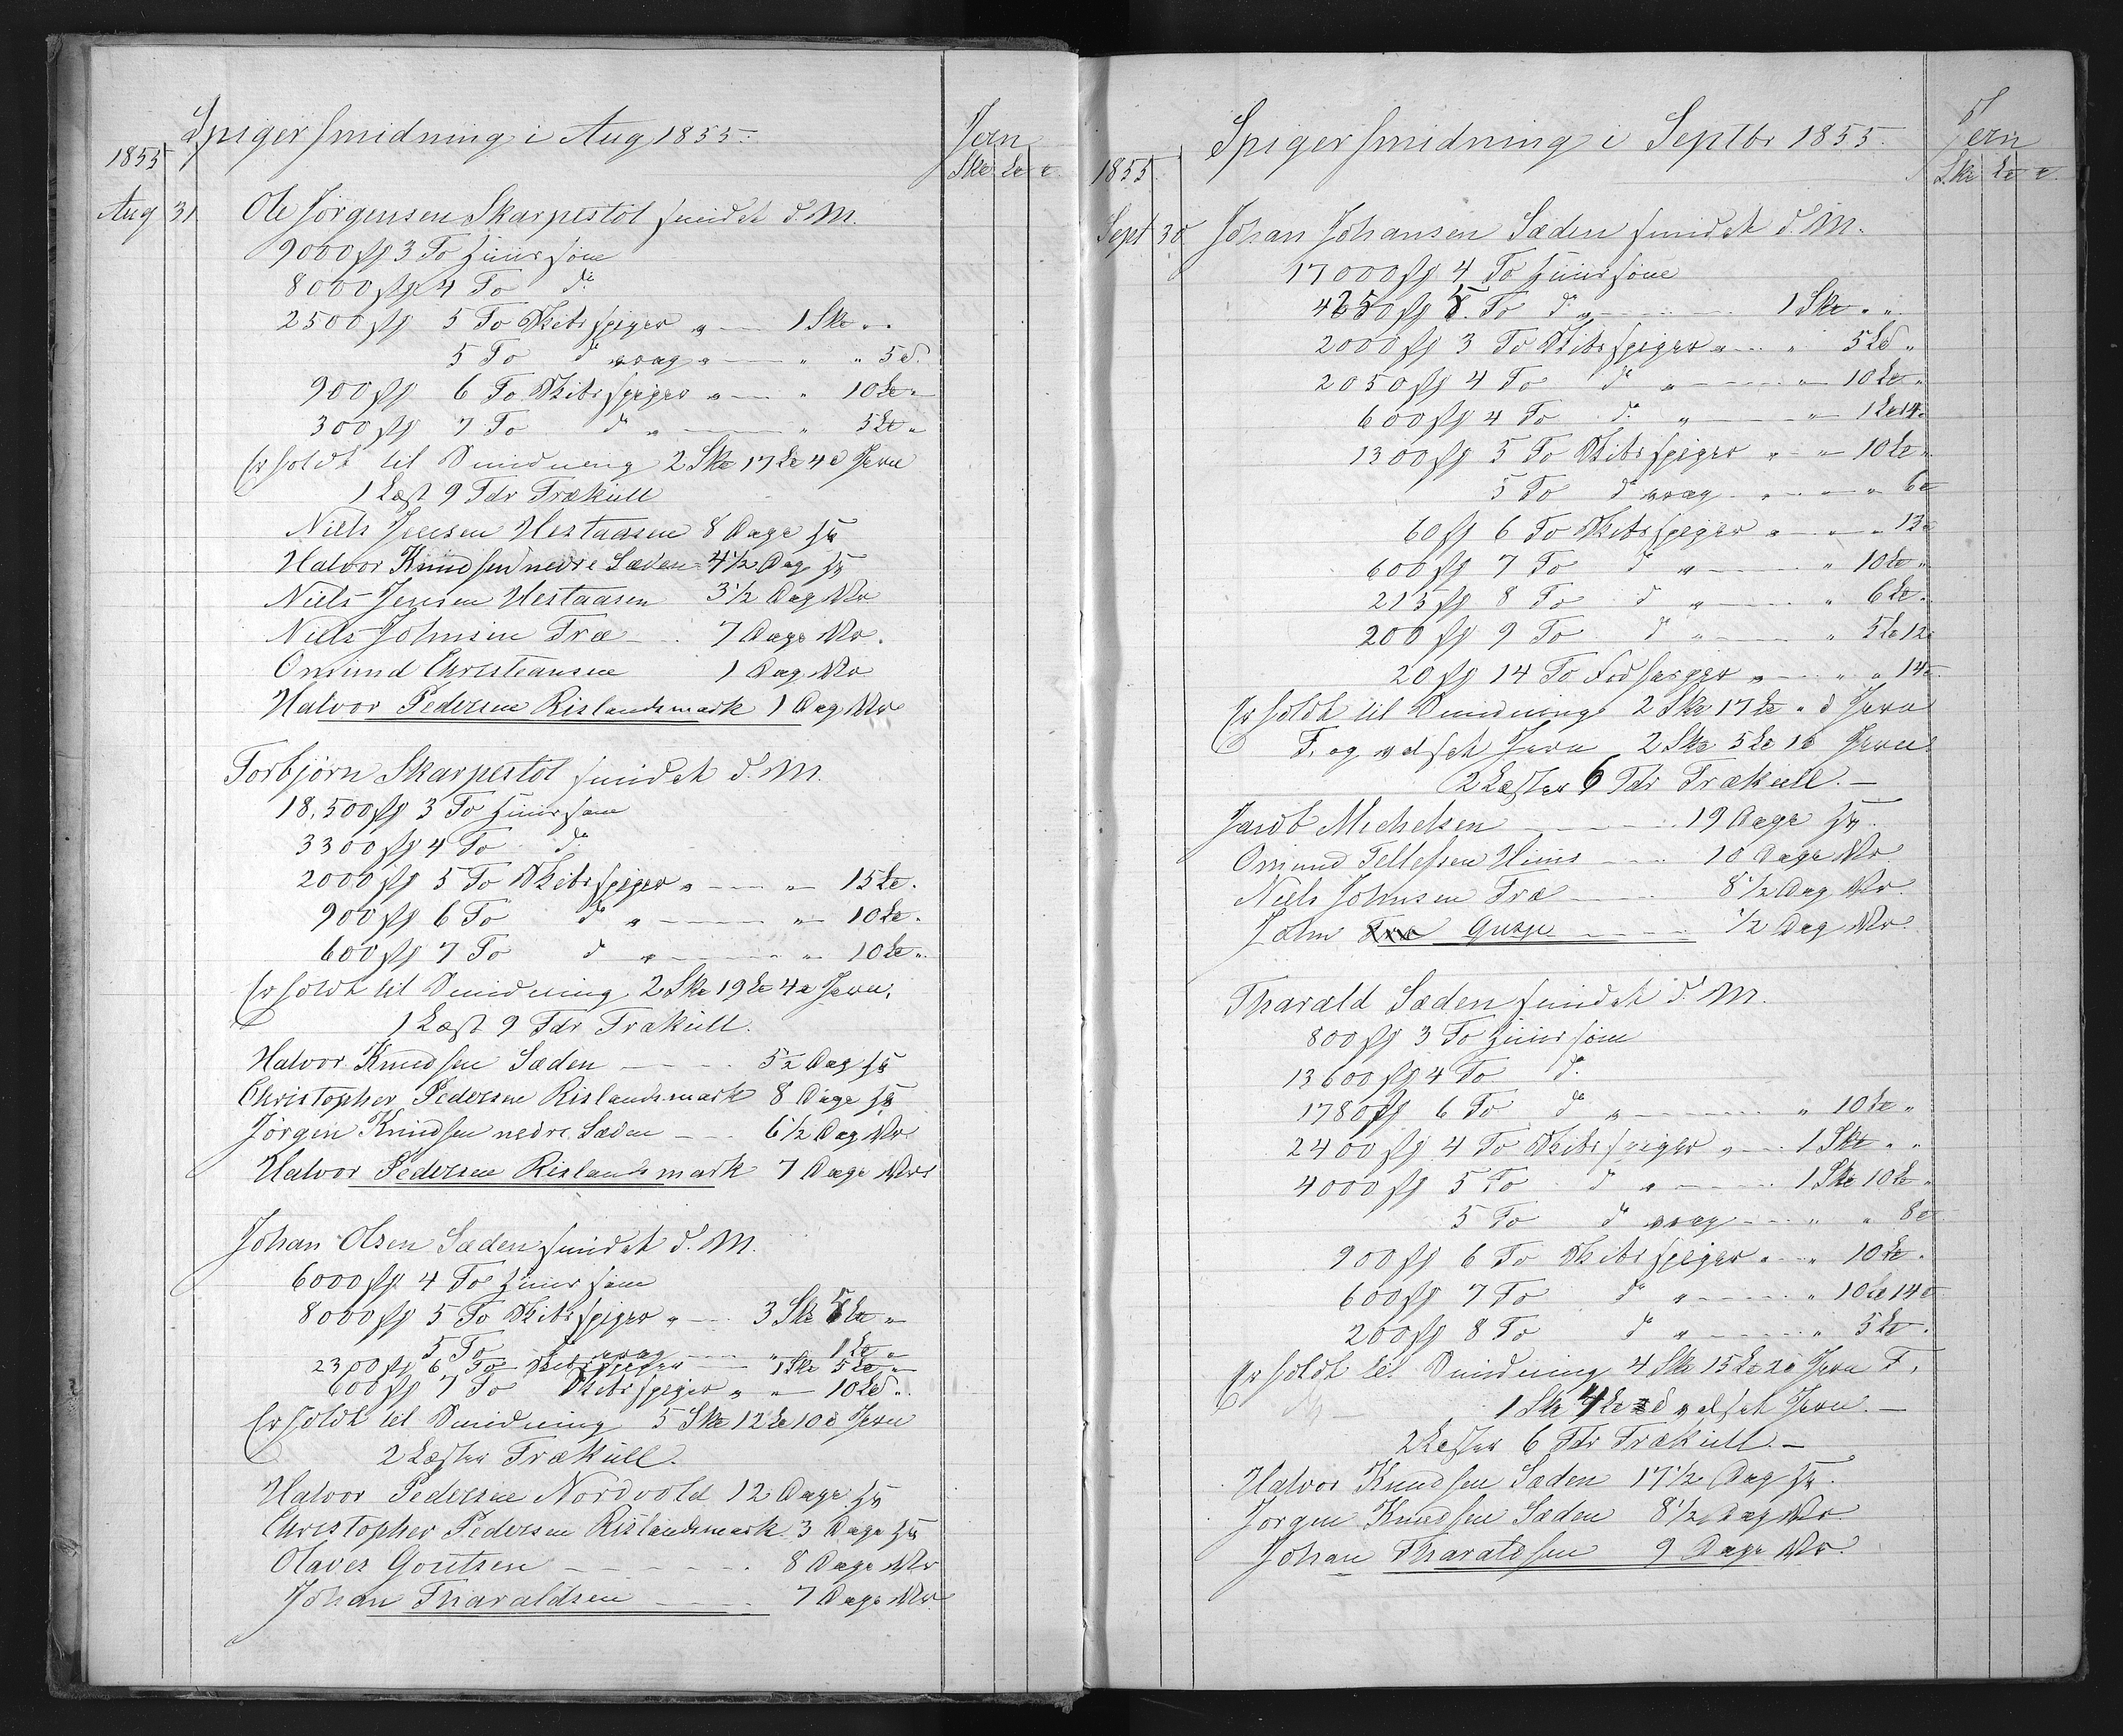 Spigersmidning i Aug 1855.
Jern
1855
Sk℔ L℔ ℔
Aug 31 Ole Jørgensen Skarpestöl smidet d. M.
9000 st 3 To Huussøm
8000 st 4 To do
2500 st 5 To Skibsspiger " 1 Sk℔ " "
5 To do vrag " " " 5 ℔.
900 st 6 To Skibsspiger " " 10 L℔ "
300 st 7 To do " " 5 L℔ "
Er holdt til Smidning 2 Sk℔ 17 L℔ 4 ℔ Jern
1 Læst 9 Tdr Trækull
Niels Jensen Hestaasen 8 Dage
Halvor Knudsen nedre Sæden 4 1/2 Dag
Niels Jensen Hestaasen 3 1/2 Dag
Niels Johnsen Træ 7 Dage
Omund Christiansen 1 Dag
Halvor Pedersen Rislandsmark 1 Dag
Torbjørn Skarpestöl smidet d. M.
18,500 st 3 To Huussøm
3300 st 4 To do
2000 st 5 To Skibsspiger " " 15 L℔.
900 st 6 To do " " 10 L℔.
600 st 7 To do " " 10 L℔ "
Er holdt til Smidning 2 Sk℔ 19 L℔ 4 ℔ Jern.
1 Læst 9 Tdr Trækull.
Halvor Knudsen Sæden 5 1/2 Dag
Christopher Pedersen Rislandsmark 8 Dage
Jørgen Knudsen nedre Sæden 6 1/2 Dag
Halvor Pedersen Rislandsmark 7 Dage
Johan Olsen Sæden smidet d. M.
6000 st 4 To Huussøm
8000 st 5 To Skibsspiger " 3 Sk℔ 5 L℔ "
5 To do vrag " 1 L℔ "
2300 st 6 To Skibsspiger 1 Sk℔ 5 L℔ "
600 st 7 To Skibsspiger " " 10 L℔ "
Er holdt til Smidning 5 Sk℔ 12 L℔ 10 ℔ Jern
2 Læster Trækull.
Halvor Pedersen Nordvold 12 Dage
Christopher Pedersen Rislandsmark 3 Dage
Olaves Goutsen 8 Dage
Johan Tharaldsen 7 Dage
Spigersmidning i Septbr 1855.
Jern
1855.
Sk℔ L℔ ℔
Sept 30 Johan Johansen Sæden smidet d. M.
17000 st 4 To Huussøm
4250 st 5 To do 1 Sk℔ " "
2000 st 3 To Skibsspiger " " 5 L℔ "
2050 st 4 To do " " 10 L℔ "
600 st 4 To do " " 1 L℔ 14 ℔
1300 st 5 To Skibsspiger " " 10 L℔ "
5 To do vrag " " " 6 ℔
60 st 6 To Skibsspiger " " " 13 ℔
600 st 7 To do " " 10 L℔ "
215 st 8 To do " " 6 L℔ "
200 st 9 To do " " 5 L℔ 12 ℔
20 st 14 To " " " 14 ℔
Er holdt til Smidning 2 Sk℔ 17 L℔ " ℔ Jern
F. og valset Jern 2 Sk℔ 5 L℔ 1 ℔ Jern
2 Læster 6 Tdr Trækull.
Jacob Michelsen 19 Dage
Omund Tellefsen 10 Dage
Niels Johnsen Træ 8 1/2 Dag
John Gusje 1/2 Dag
Tharald Sæden smidet d. M.
800 st 3 To Huussøm
13600 st 4 To do
1780 st 6 To do " " 10 L℔ "
2400 st 4 To Skibsspiger " 1 Sk℔ " "
4000 st 5 To do " 1 Sk℔ 10 L℔ "
5 To do vrag " " 8 ℔
900 st 6 To Skibsspiger " " 10 L℔ "
600 st 7 To do " " 10 L℔ 14 ℔
200 st 8 To do " " 5 L℔ "
Er holdt til Smidning 4 Sk℔ 15 L℔ 2 ℔ Jern F.
1 Sk℔ 4 L℔ ℔ valset Jern.
2 Læster 6 Tdr Trækull.
Halvor Knudsen Sæden 17 1/2 Dag
Jorgen Knudsen Sæden 8 1/2 Dag
Johan Tharaldsen 9 Dage